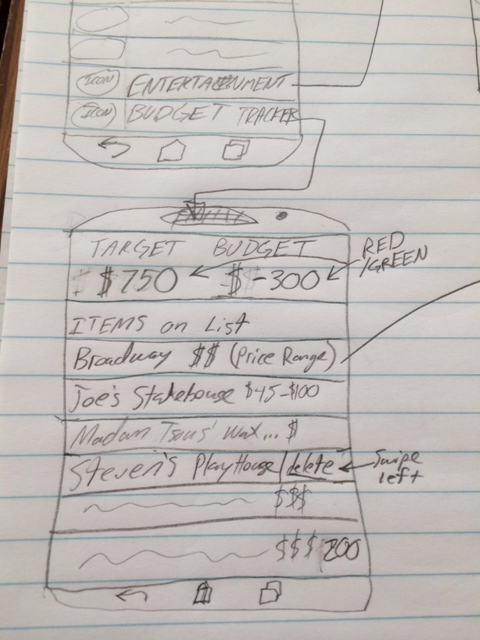 ICON ENTERTAINMENT
ICON BUDGET TRACKER
TARGET BUDGET
$750 $-300
RED
/GREEN
ITEMS on List
Broadway $$ (Price Range)
Joe's Stakehouse $45-$100
Madam Tsaus' wax... $
Steven's PlayHouse/delete
Swipe
left
$$$
$$$ 200